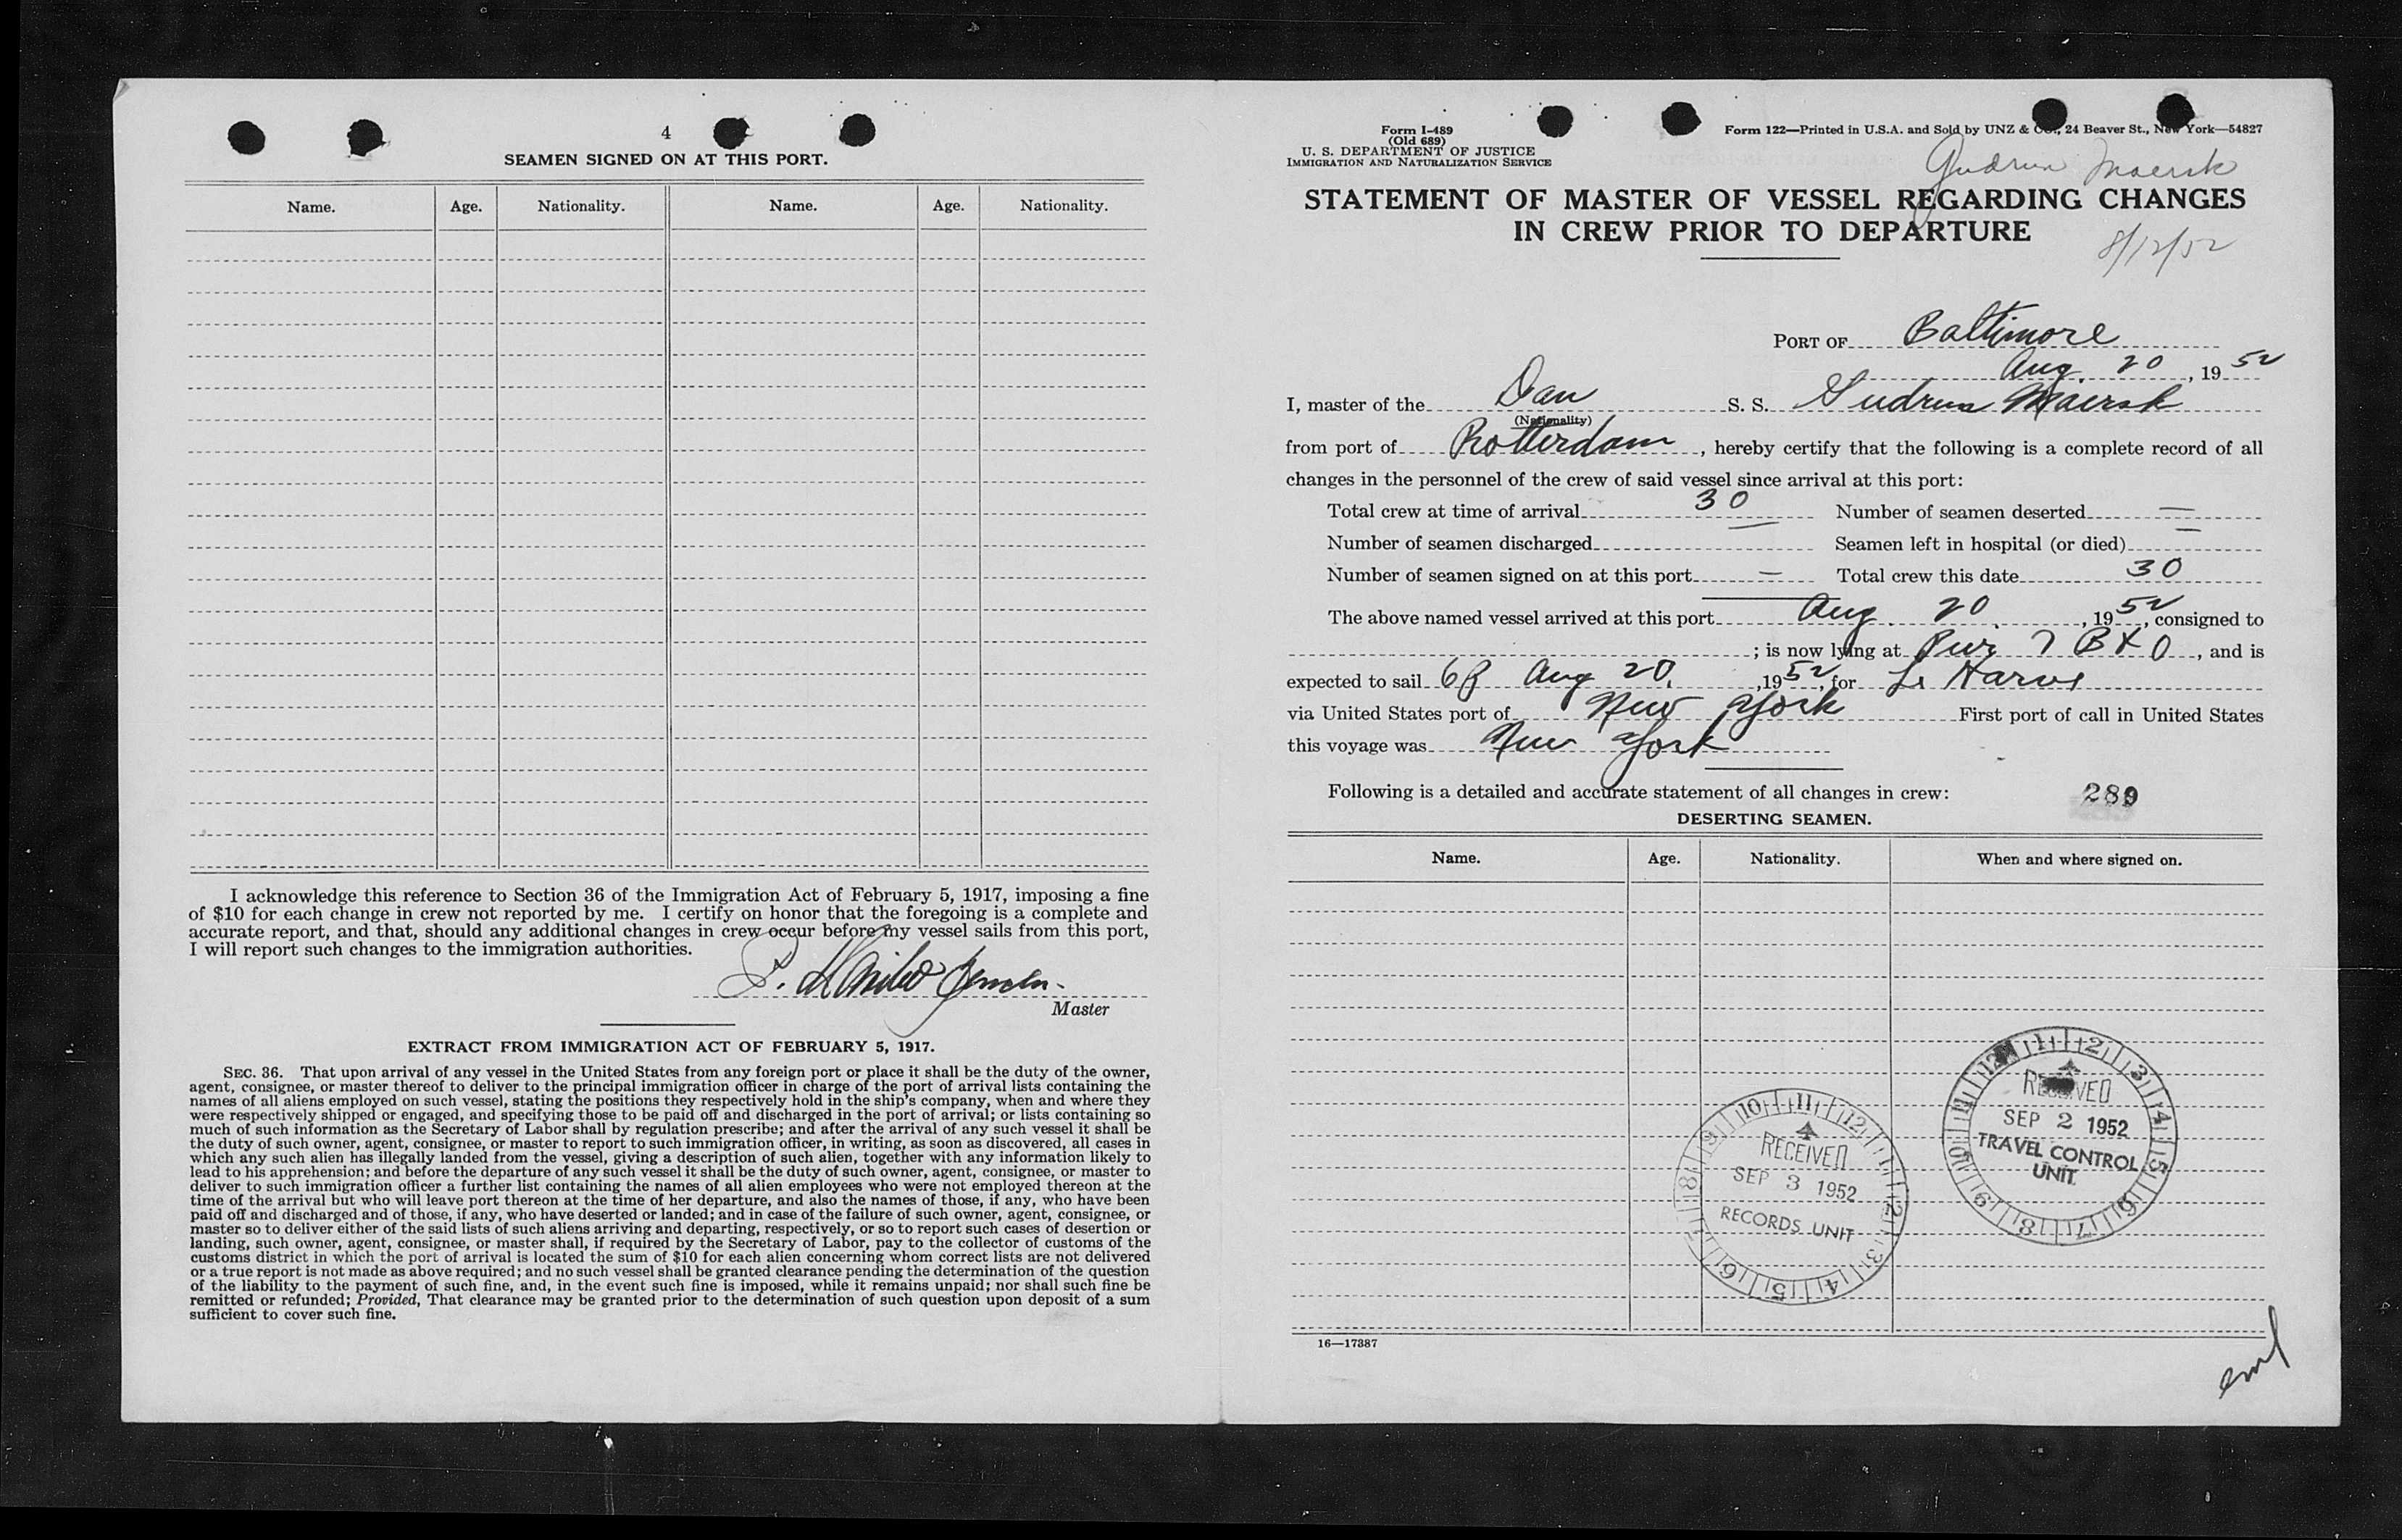 4
SEAMEN SIGNED ON AT THIS PORT.
Name. Age. Nationality. Name. Age. Nationality.
I acknowledge this reference to Section 36 of the Immigration Act of February 5, 1917, imposing a fine
of $10 for each change in crew not reported by me. I certify on honor that the foregoing is a complete and
accurate report, and that, should any additional changes in crew occur before my vessel sails from this port,
I will report such changes to the immigration authorities.
Master
EXTRACT FROM IMMIGRATION ACT OF FEBRUARY 5, 1917.
SEC. 36. That upon arrival of any vessel in the United States from any foreign port or place it shall be the duty of the owner,
agent, consignee, or master thereof to deliver to the principal immigration officer in charge of the port of arrival lists containing the
names of all aliens employed on such vessel, stating the positions they respectively hold in the ship's company, when and where they
were respectively shipped or engaged, and specifying those to be paid off and discharged in the port of arrival; or lists containing so
much of such information as the Secretary of Labor shall by regulation prescribe; and after the arrival of any such vessel it shall be
the duty of such owner, agent, consignee, or master to report to such immigration officer, in writing, as soon as discovered, all cases in
which any such alien has illegally landed from the vessel, giving a description of such alien, together with any information likely to
lead to his apprehension; and before the departure of any such vessel it shall be the duty of such owner, agent, consignee, or master to
deliver to such immigration officer a further list containing the names of all alien employees who were not employed thereon at the
time of the arrival but who will leave port thereon at the time of her departure, and also the names of those, if any, who have been
paid off and discharged and of those, if any, who have deserted or landed; and in case of the failure of such owner, agent, consignee, or
master so to deliver either of the said lists of such aliens arriving and departing, respectively, or so to report such cases of desertion or
landing, such owner, agent, consignee, or master shall, if required by the Secretary of Labor, pay to the collector of customs of the
customs district in which the port of arrival is located the sum of $10 for each alien concerning whom correct lists are not delivered
or a true report is not made as above required; and no such vessel shall be granted clearance pending the determination of the question
of the liability to the payment of such fine, and, in the event such fine is imposed, while it remains unpaid; nor shall such fine be
remitted or refunded; Provided, That clearance may be granted prior to the determination of such question upon deposit of a sum
sufficient to cover such fine.
Form I-489
(Old 689)
U. S. DEPARTMENT OF JUSTICE
IMMIGRATION AND NATURALIZATION SERVICE
Form 122—Printed in U.S.A. and Sold by UNZ & Co., 24 Beaver St., New York—54827
Gudrun Maersk
STATEMENT OF MASTER OF VESSEL REGARDING CHANGES
IN CREW PRIOR TO DEPARTURE
8/12/52
PORT OF Baltimore
Aug. 20, 1952
I, master of the Dan S. S. Gudrun Maersk
(Nationality)
from port of Rotterdam, hereby certify that the following is a complete record of all
changes in the personnel of the crew of said vessel since arrival at this port:
Total crew at time of arrival 30 Number of seamen deserted —
Number of seamen discharged — Seamen left in hospital (or died) —
Number of seamen signed on at this port — Total crew this date 30
The above named vessel arrived at this port Aug. 20, 1952, consigned to
; is now lying at Pier 7 B & O, and is
expected to sail 6P Aug 20, 1952, for Le Harve
via United States port of New York First port of call in United States
this voyage was New York
Following is a detailed and accurate statement of all changes in crew: 289
DESERTING SEAMEN.
Name. Age. Nationality. When and where signed on.
1 2 3 4 5 6 7 8 9 10 11 12
RECEIVED
SEP 2 1952
TRAVEL CONTROL
UNIT
10 11 12 1 2 3 4 5 6 7 8 9
RECEIVED
SEP 3 1952
RECORDS UNIT
16—17387
eml